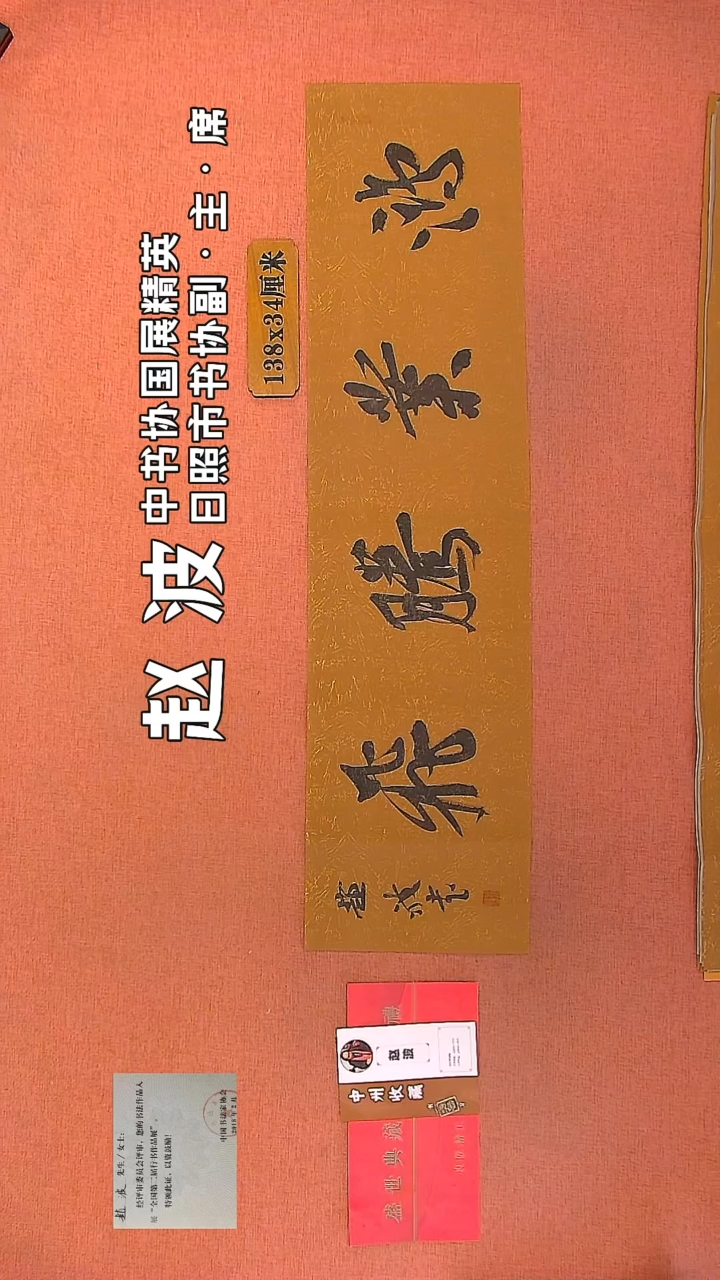 赵 波
中书协国展精英
日照市书协副·主·席
138x34厘米
鴻業騰飛
趙波書
赵波
中州收藏
盛世典藏
赵 波 先生/女士:
经评审委员会评审,您的书法作品入
展“全国第二届行书作品展”。
特颁此证,以资鼓励!
中国书法家协会